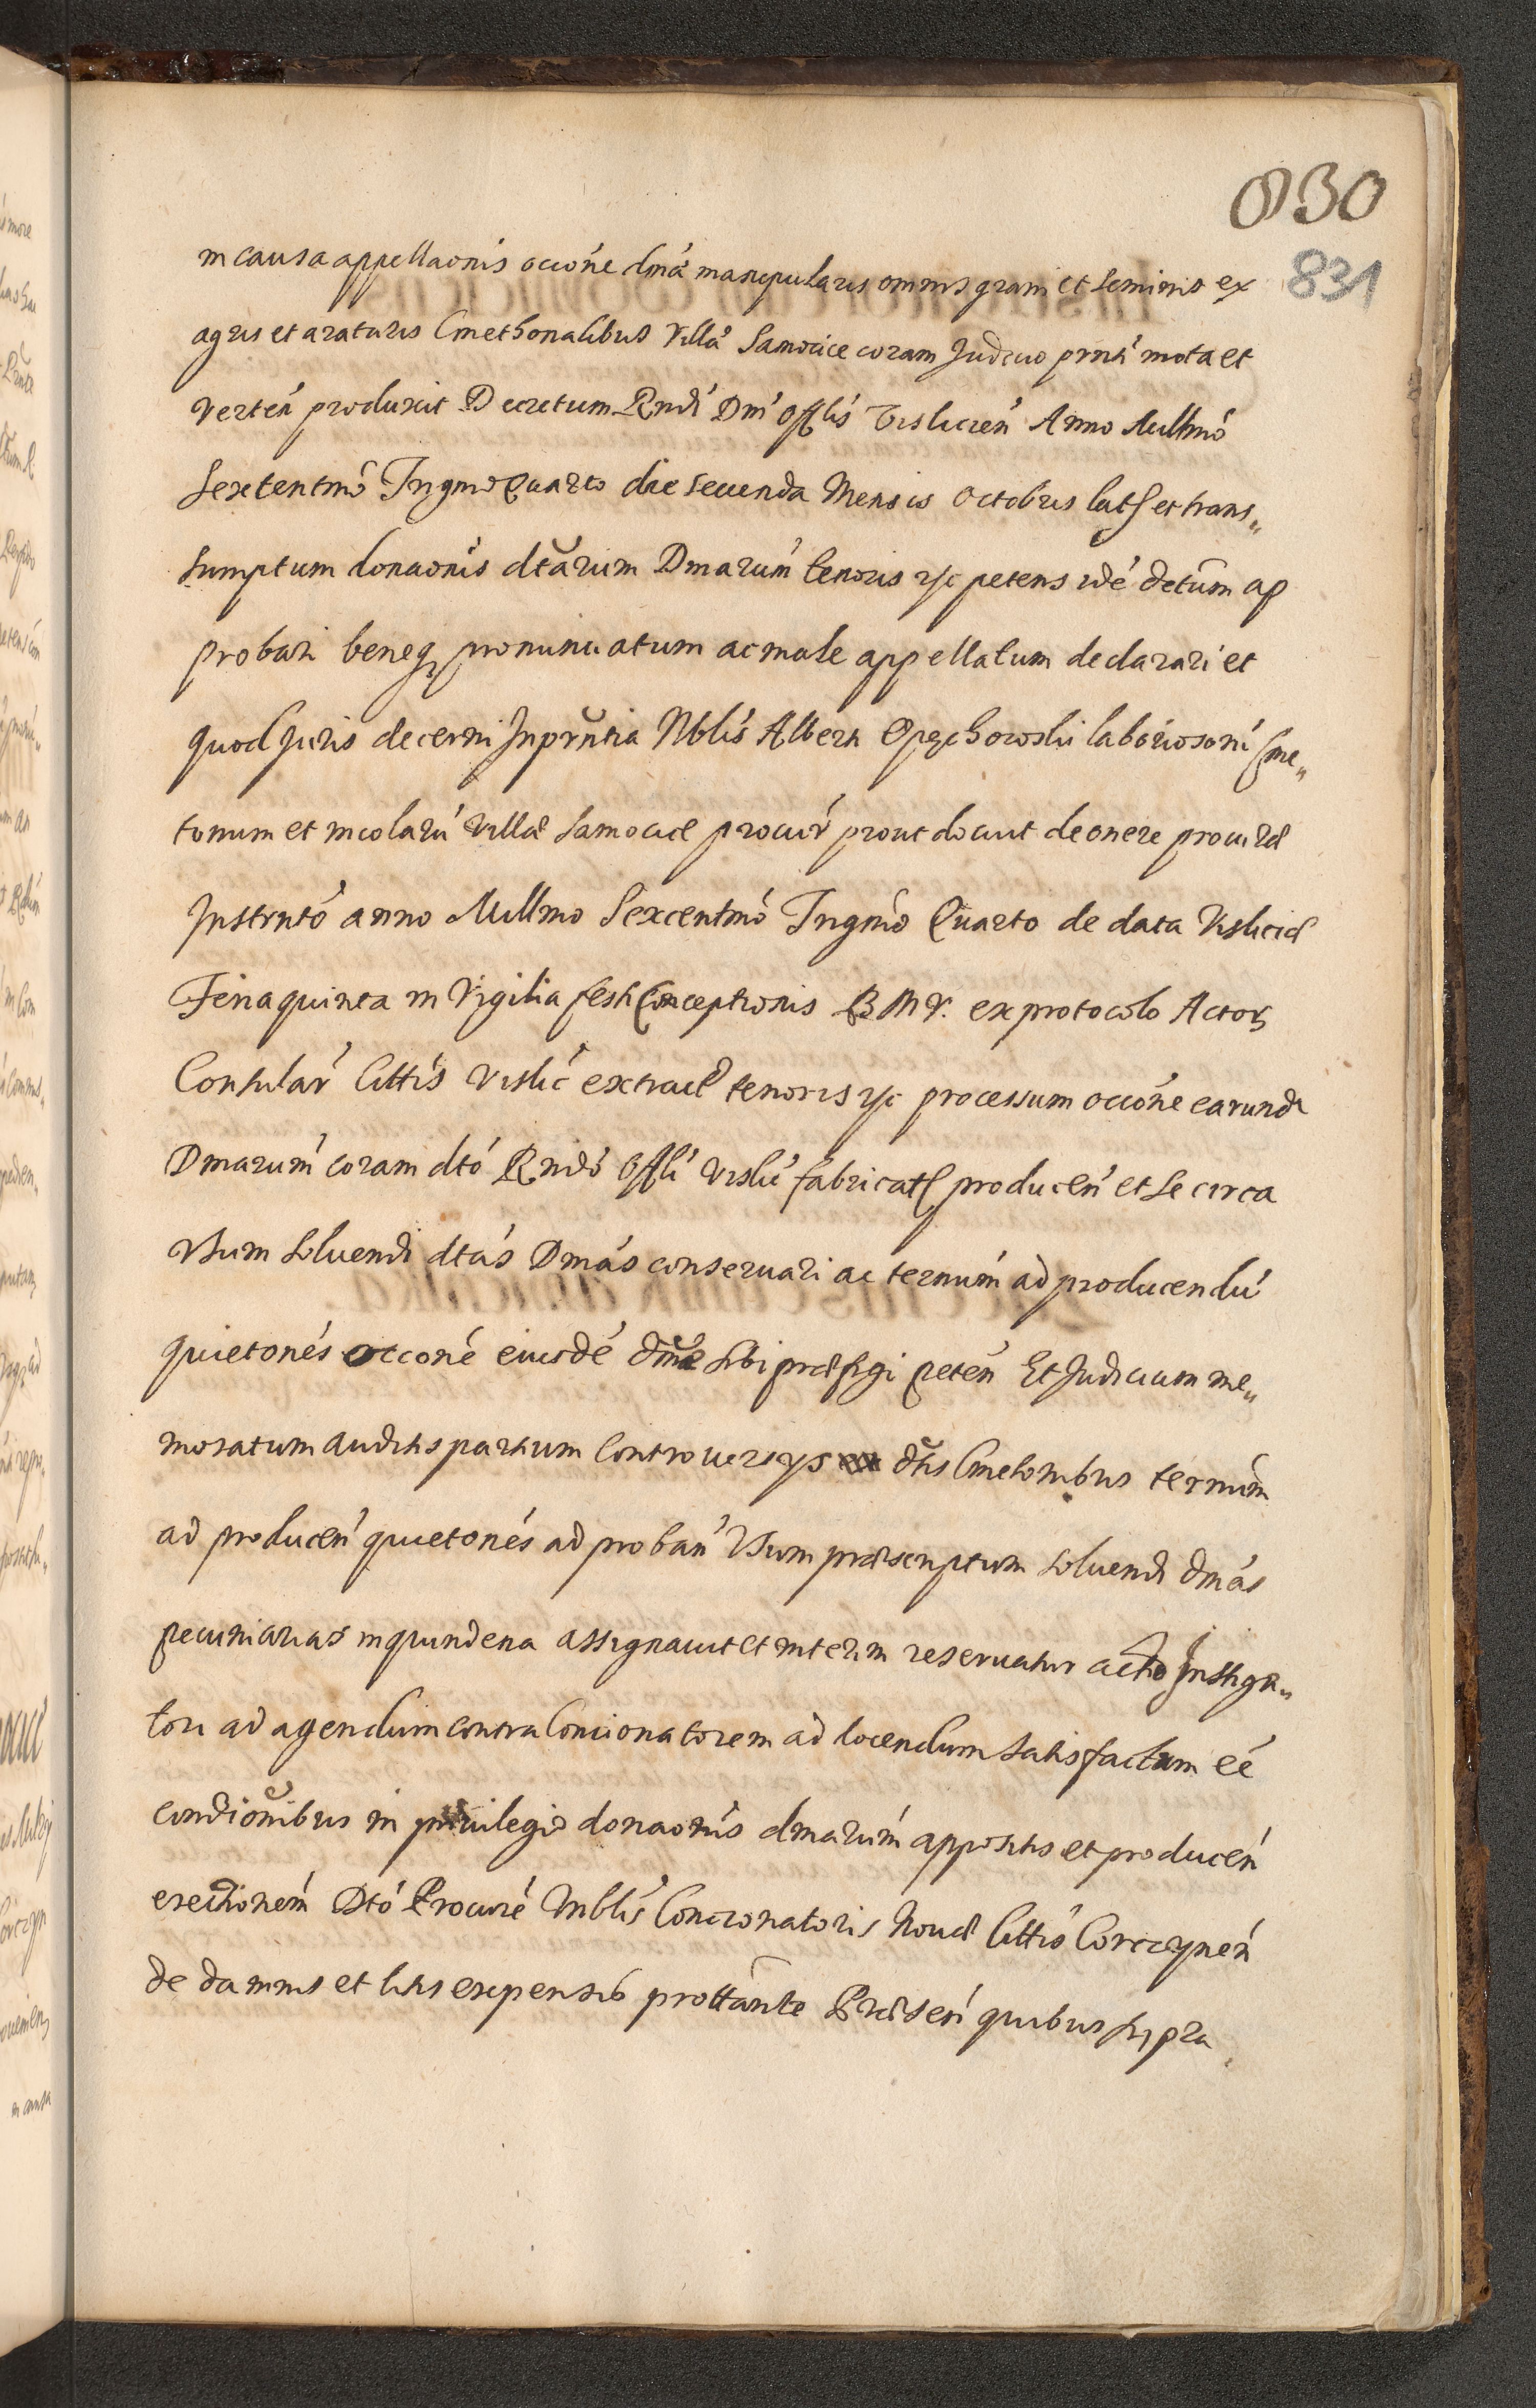 830
831
in causa appellaonis occone dmae manipularis omnis grani et seminis ex
agris et araturis Cmethonalibus Villae Samocice coram Judicio prnti mota et
verten produxit Decretum Rndi Dni Offlis Vislicien Anno Millmo
Sexcentmo Trigmo Quarto die secunda Mensis Octobris lat et trans„
sumptum donaonis dtarum Dmarum tenoris petens ide detum ap
probari beneq pronunciatum ac male appellatum declarari et
quod Juris decerni In prntia Nblis Alberti Opęchowski laboriosorū Cme„
tonum et incolarū Villae Samocice procur prout docuit de onere procurae
Instrnto anno Millmo Sexcentmo Trigmo Quarto de data Visliciae
Feria quinta in Vigilia festi Conceptionis B M V. ex protocolo Actor
Consular Cittis Vislic extract tenoris processum occone earund
Dmarum coram dto Rndo Offli Vislic fabricat producen et se circa
Usum soluendi dtas Dmas conseruari ac ternum ad producendū
quietones occone eiusde dmae sibi praefigi peten Et Judicium me„
moratum auditis partium Controuersys dtis Cmetonibus ternum
ad producen quietones ad proban Usum praescriptum soluendi dmas
pecuniarias in quindena assignauit et interim reseruatur actio Instiga„
tori ad agendum contra Concionatorem ad docendum satisfactum ee
condionibus in priuilegio donaonis dmarum appositis et producen
erectionem Dto Procure Vnblis Concionatoris Nouae Cittis Corczynen
de damnis et litis expensis prottante Praesen quibus supra